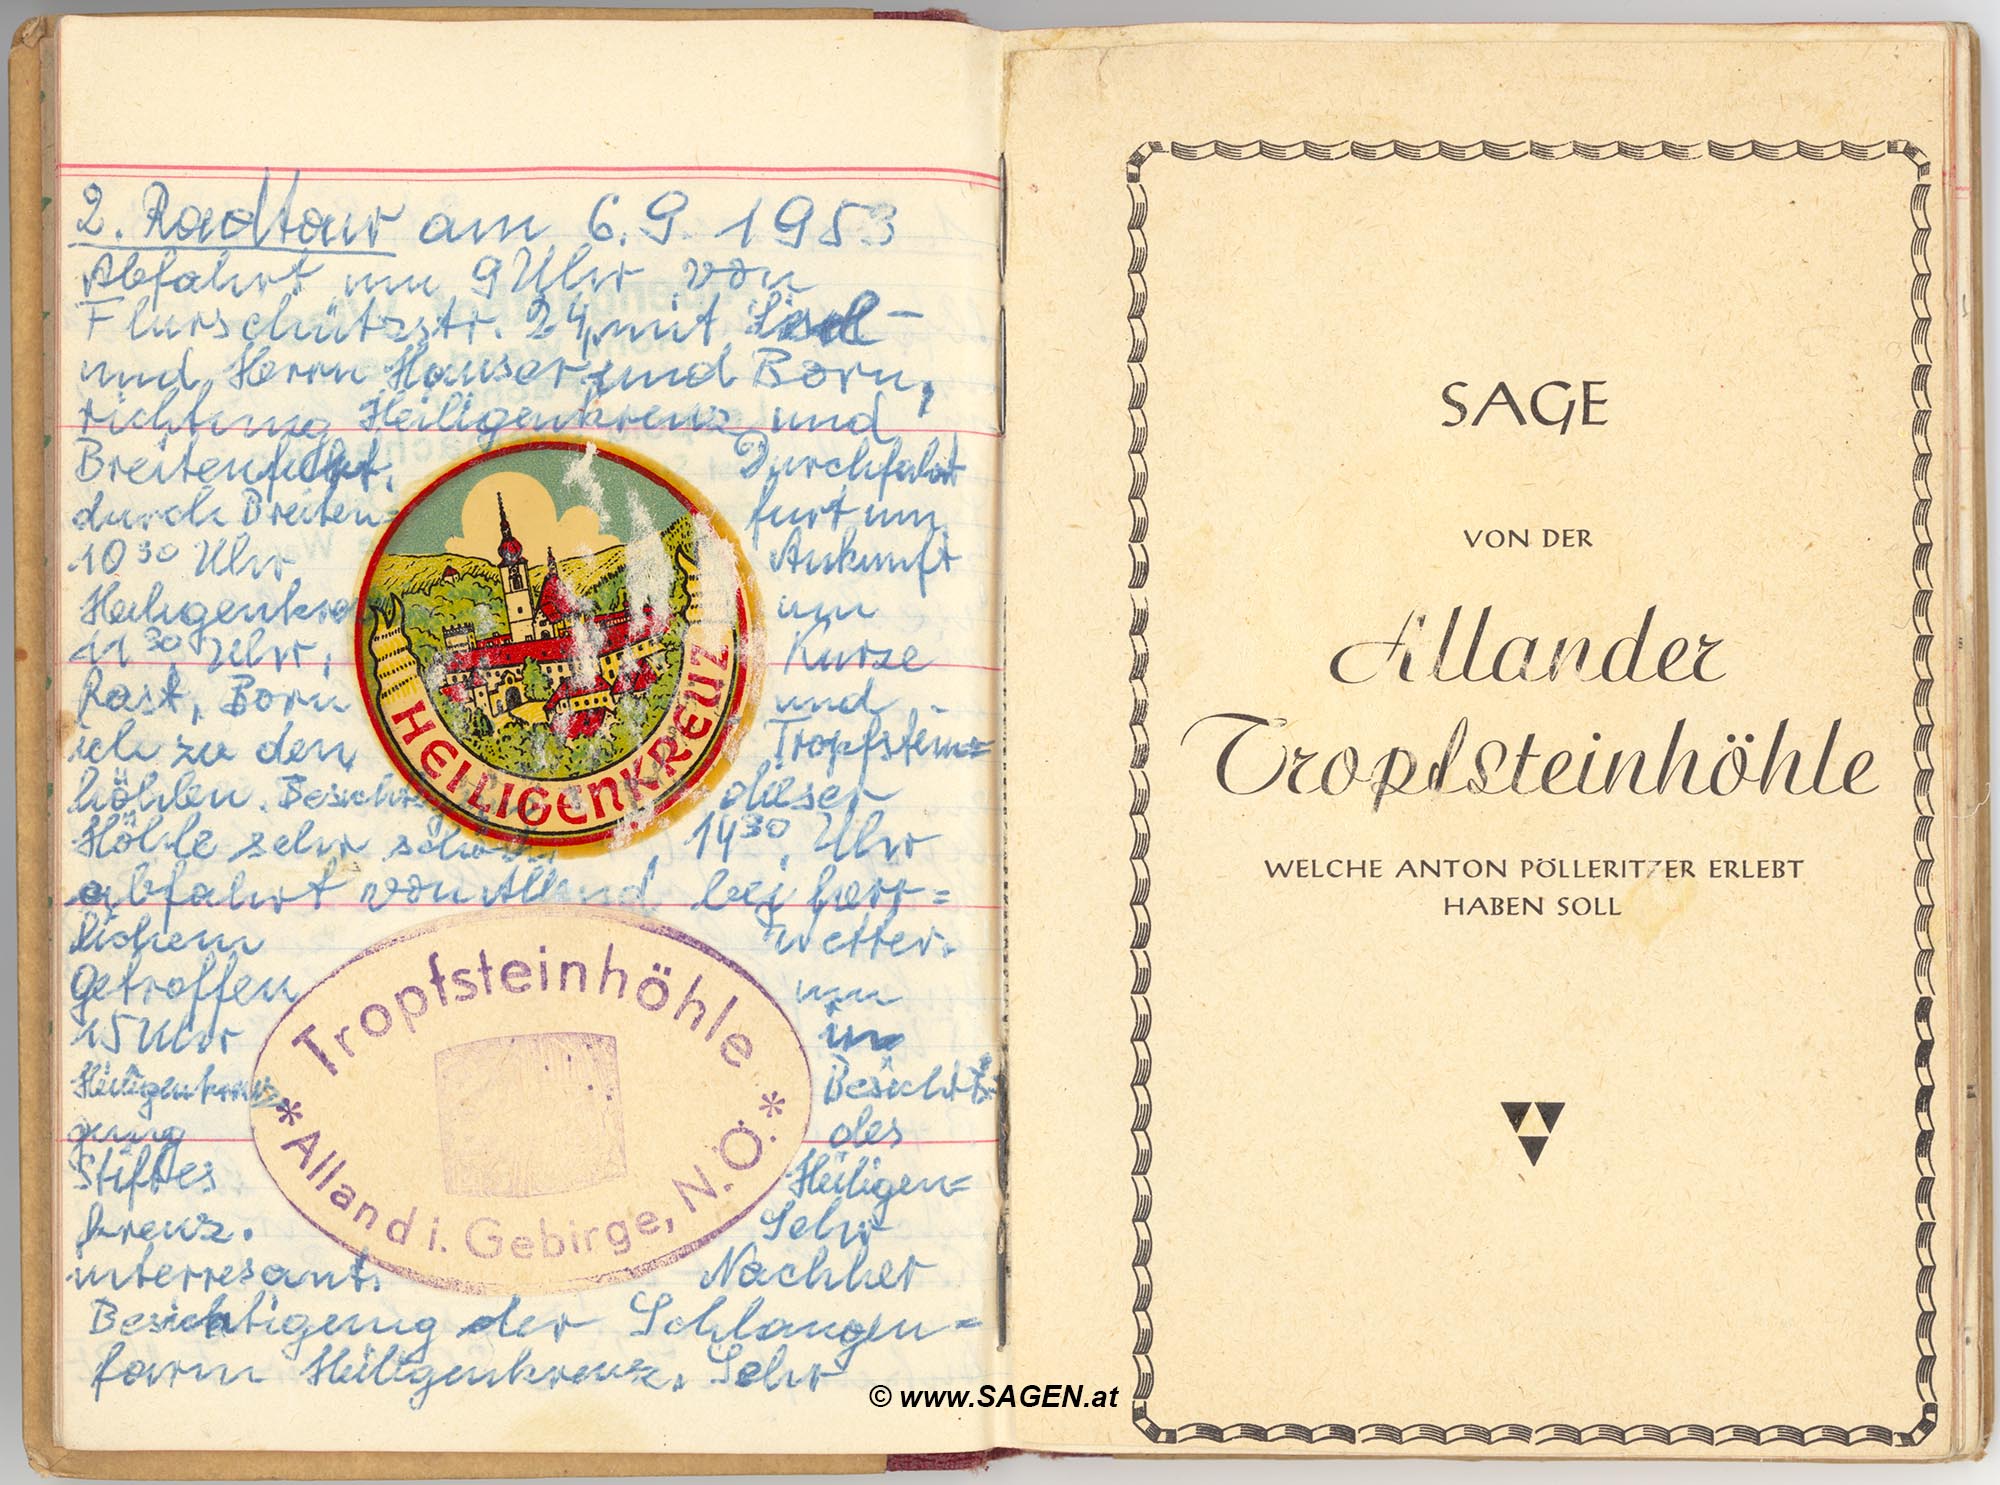 2. Radtour am 6.9.1953
Abfahrt um 9 Uhr von
Flurschützstr. 24, mit
und Herrn Hauser und Born,
richtung Heiligenkreuz und
Breitenfurt. Durchfahrt
durch Breiten= furt um
10 30 Uhr Ankunft
Heiligenkreuz um
11 30 Uhr, Kurze
Rast, Born und
ich zu den Tropfstein=
höhlen. dieser
Höhle sehr schön, 14 30, Uhr
abfahrt von Alland bei herr=
lichem Wetter.
getroffen um
15 Uhr in
Heiligenkreuz Besichti
gung des
Stiftes Heiligen=
kreuz. Sehr
interresant. Nachher
Besichtigung der Schlangen=
farm Heiligenkreuz. Sehr
HEILIGENKREUZ
Tropfsteinhöhle
* Alland i. Gebirge, N.Ö. *
SAGE
VON DER
Allander
Tropfsteinhöhle
WELCHE ANTON PÖLLERITZER ERLEBT
HABEN SOLL
© www.SAGEN.at